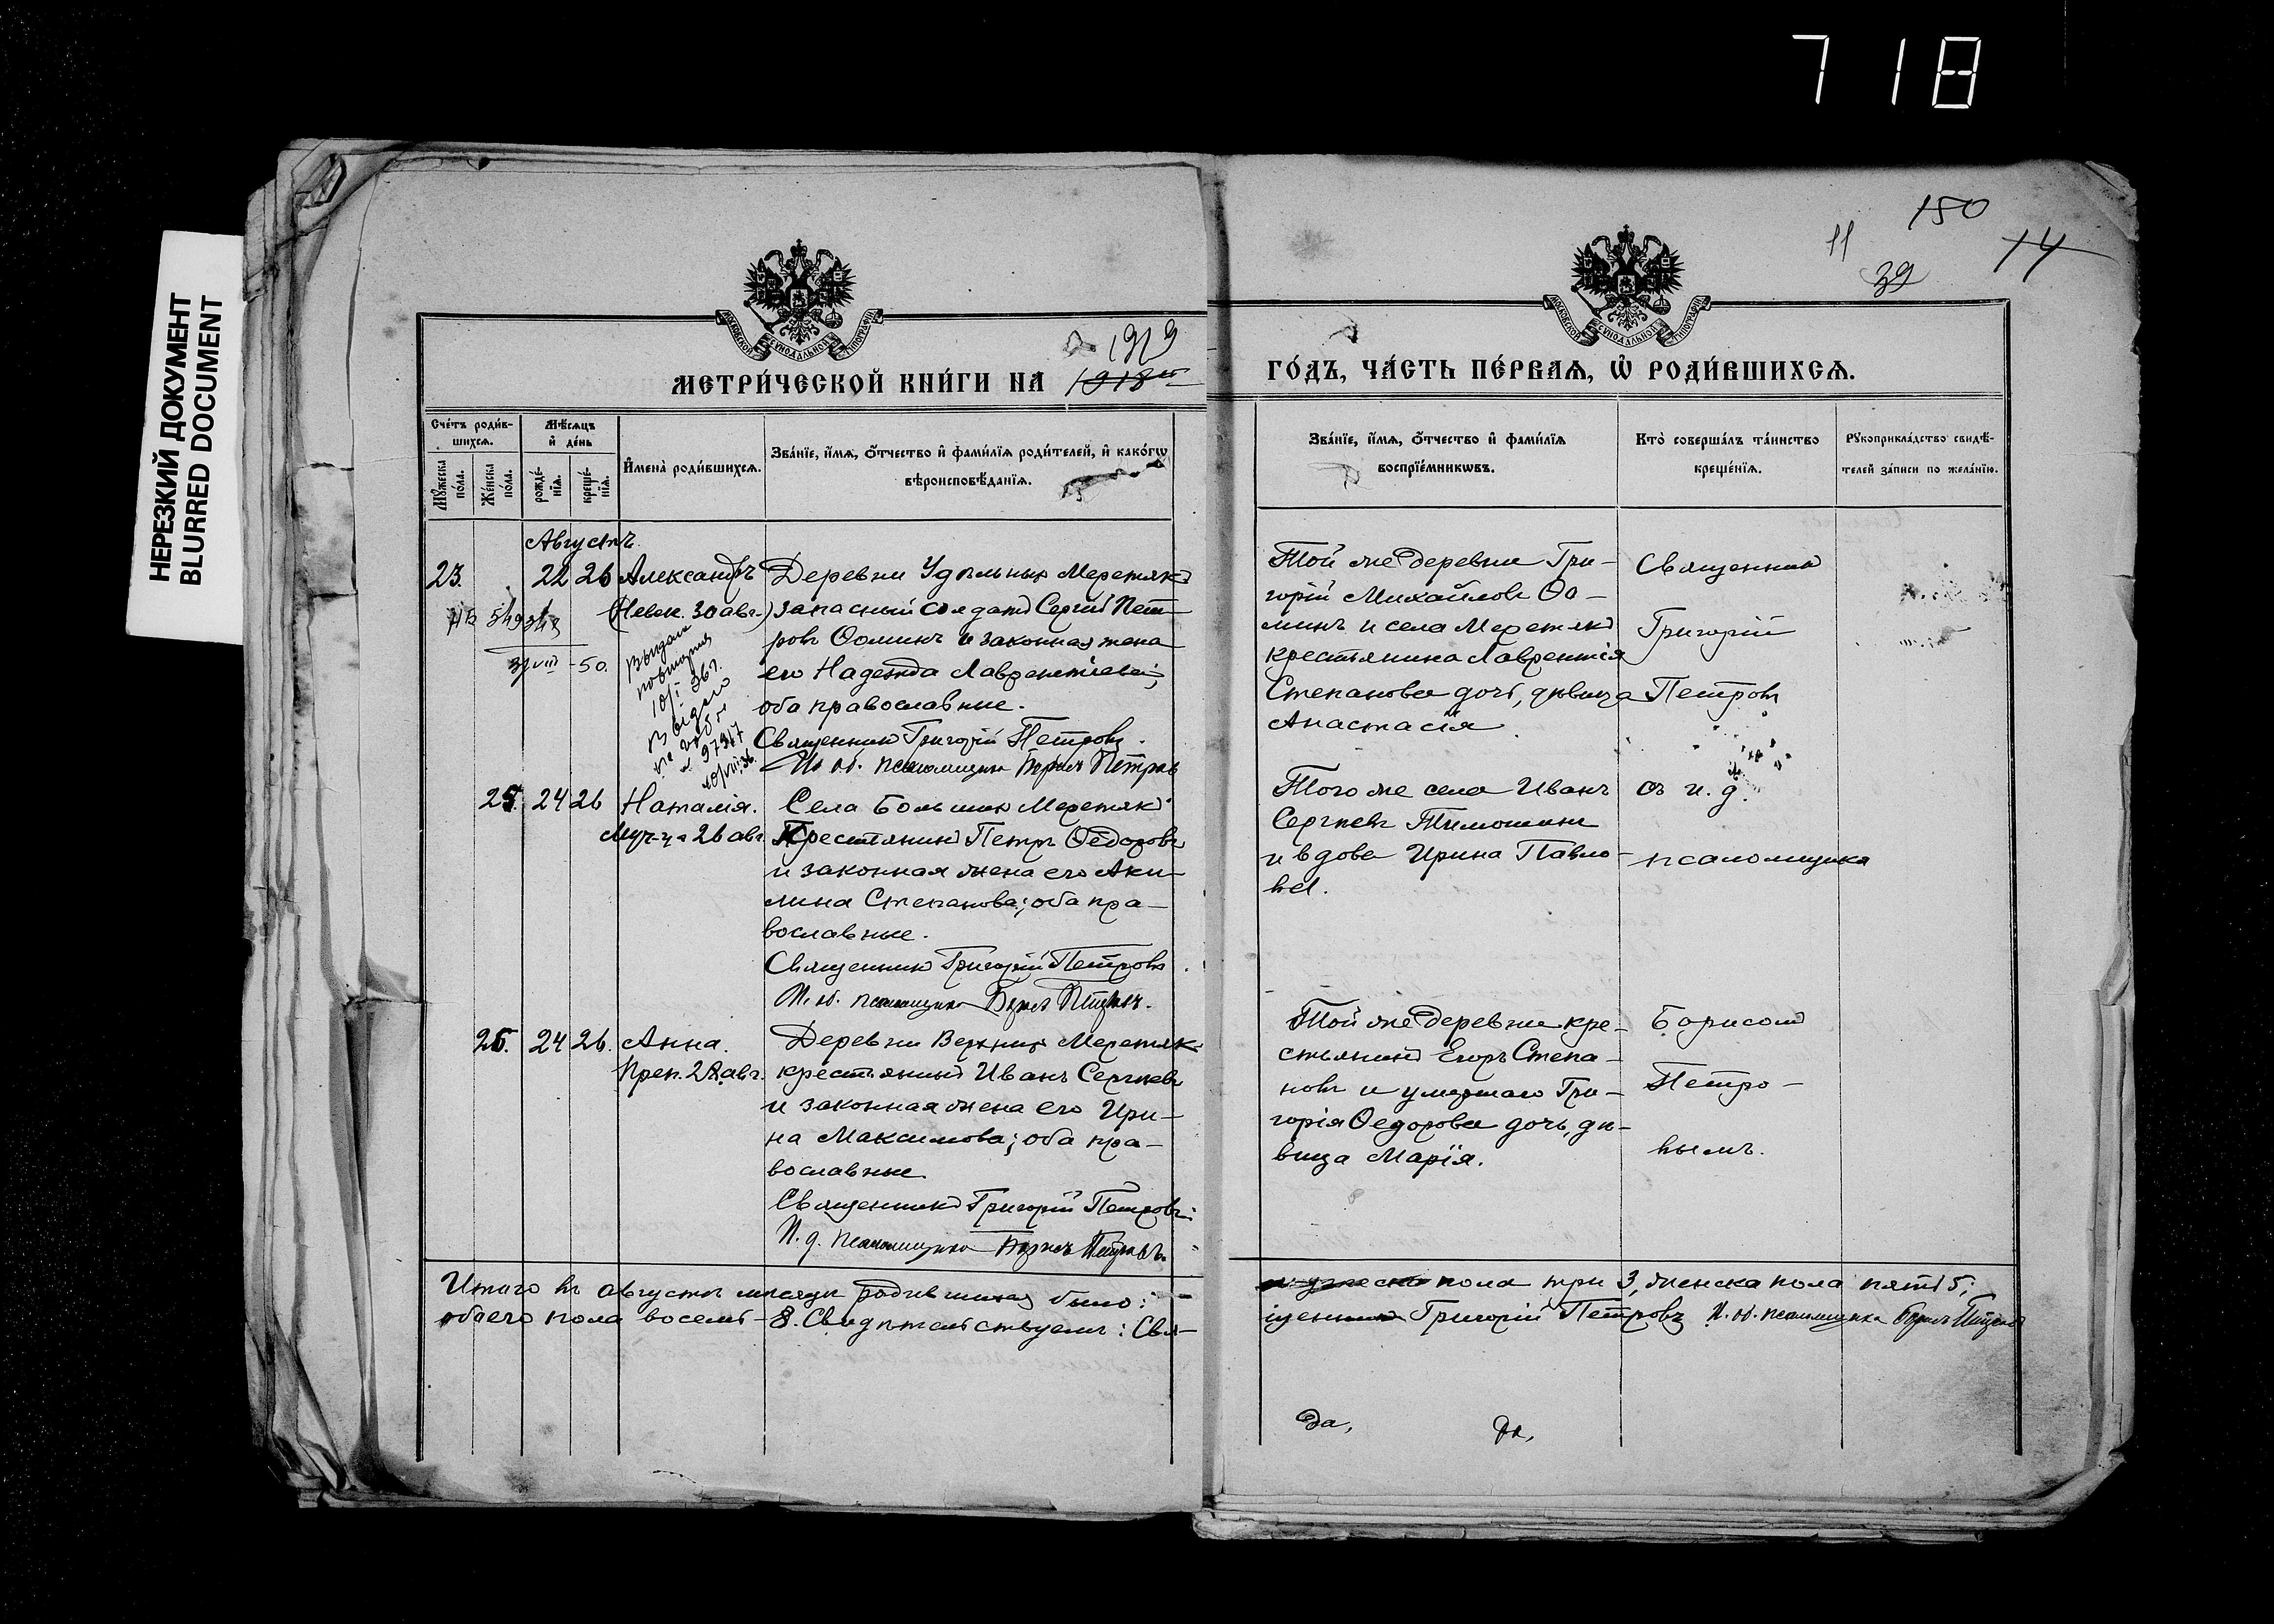 718
НЕРЕЗКИЙ ДОКУМЕНТ
BLURRED DOCUMENT
150
11
39
14
МОСКОВСКОЙ СѴНОДАЛЬНОЙ ТИПОГРАФІИ
МОСКОВСКОЙ СѴНОДАЛЬНОЙ ТИПОГРАФІИ
1919
МЕТРИ́ЧЕСКОЙ КНИ́ГИ НА 1918
ГО́ДЪ, ЧА́СТЬ ПЕ́РВАѦ, Ѡ҆ РОДИ́ВШИХСѦ.
Сче́тъ роди́в-
шихсѧ.
Мꙋ́жеска по́ла.
Же́нска по́ла.
Мѣ́сѧцъ
и҆ де́нь
рожде́-
нїѧ.
креще́-
нїѧ.
И҆мена̀ роди́вшихсѧ.
Зва́нїе, и҆́мѧ, ѻ҆́тчество и҆ фами́лїѧ роди́телей, и҆ како́гѡ
вѣроисповѣ́данїѧ.
Зва́нїе, и҆́мѧ, ѻ҆́тчество и҆ фами́лїѧ
воспрїе́мникѡвъ.
Кто̀ соверша́лъ та́инство
креще́нїѧ.
Рꙋкоприкла́дство свидѣ́-
телей за́писи по жела́нїю.
Августъ
23. 22 26 Александръ Деревни Удѣльныхъ Меретякъ
(Невск. 30 авг.) запасный солдатъ Сергій Пет-
ровъ Ѳоминъ и законная жена
его Надежда Лаврентіева;
оба православные.
Священникъ Григорій Петровъ.
И. об. псаломщика Борисъ Петровъ
50.
Выдана
повторная
Той же деревни Гри-
горій Михайловъ Ѳо-
минъ и села Меретякъ
крестьянина Лаврентія
Степанова дочь, дѣвица
Анастасія
Священникъ
Григорій
Петровъ
25. 24 26 Наталія. Села Большихъ Меретякъ
Муч-ца 26 авг. Крестьянинъ Петръ Ѳедоровъ
и законная жена его Аки-
лина Степанова; оба пра-
вославные.
Священникъ Григорій Петровъ
И. об. псаломщика Борисъ Петровъ.
Того же села Иванъ
Сергѣевъ Тимошинъ
и вдова Ирина Павло-
ва.
съ и. д.
псаломщика
26. 24 26. Анна. Деревни Верхнихъ Меретякъ
Преп. 28 авг. крестьянинъ Иванъ Сергѣевъ
и законная жена его Ири-
на Максимова; оба пра-
вославные
Священникъ Григорій Петровъ.
И. д. псаломщика Борисъ Петровъ.
Той же деревни кре-
стьянинъ Егоръ Степа-
новъ и умершаго Гри-
горія Ѳедорова дочь, дѣ-
вица Марія.
Борисомъ
Петро-
вымъ.
Итого въ августѣ мѣсяцѣ родившихся было: мужеска пола три 3, женска пола пять 5;
обоего пола восемь - 8. Свидѣтельствуемъ: Свя-
щенникъ Григорій Петровъ И. об. псаломщика Борисъ Петровъ